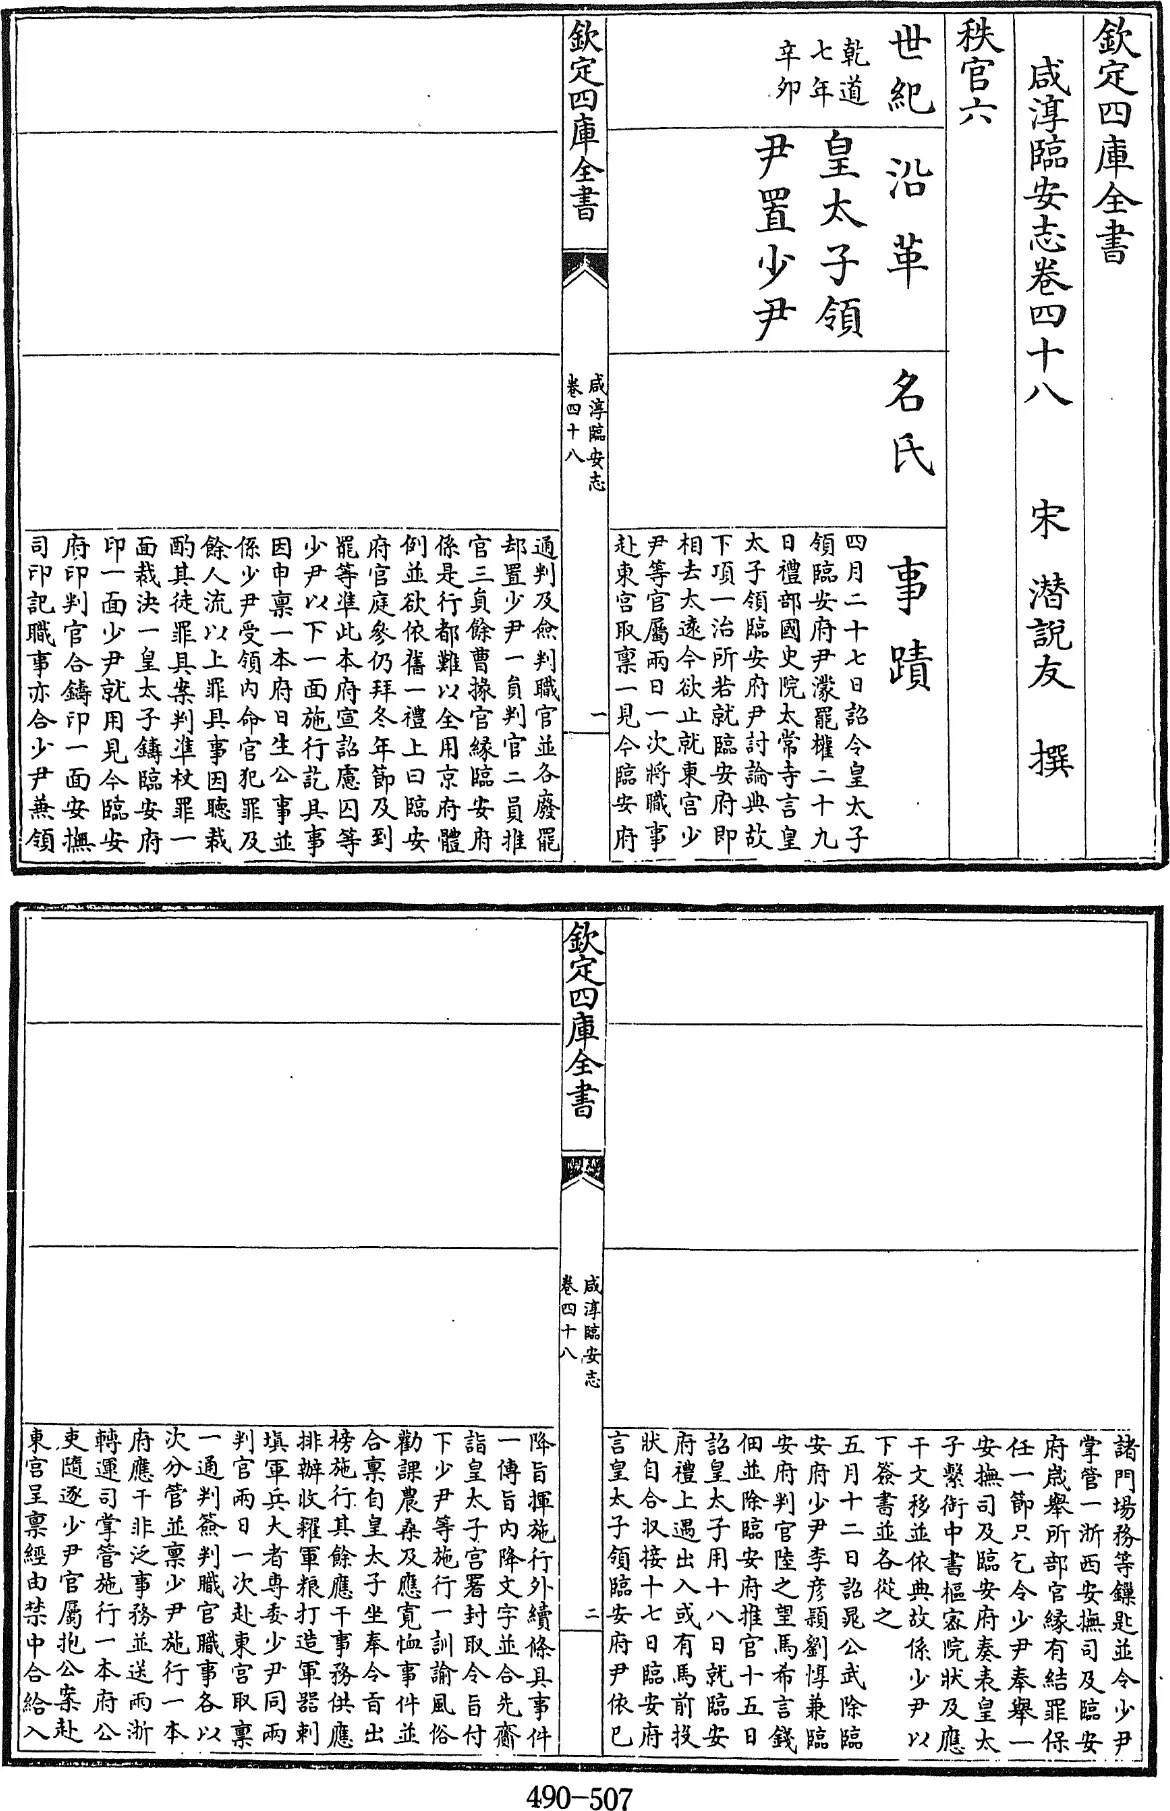 欽定四庫全書
咸淳臨安志卷四十八　宋　潛說友　撰
秩官六
世紀　沿革　名氏　事蹟
乾道七年辛卯
皇太子領
尹置少尹
四月二十七日詔令皇太子
領臨安府尹濛罷權二十九
日禮部國史院太常寺言皇
太子領臨安府尹討論典故
下項一治所若就臨安府即
相去太遠今欲止就東宮少
尹等官屬兩日一次將職事
赴東宮取稟一見今臨安府
欽定四庫全書
咸淳臨安志
卷四十八
一
通判及僉判職官並各廢罷
却置少尹一員判官二員推
官三員餘曹掾官緣臨安府
係是行都難以全用京府體
例並欲依舊一禮上曰臨安
府官庭參仍拜冬年節及到
罷等準此本府宣詔慮囚等
少尹以下一面施行訖具事
因申稟一本府日生公事並
係少尹受領内命官犯罪及
餘人流以上罪具事因聽裁
酌其徒罪具案判準杖罪一
面裁決一皇太子鑄臨安府
印一面少尹就用見今臨安
府印判官合鑄印一面安撫
司印記職事亦合少尹兼領
諸門場務等鏁匙並令少尹
掌管一浙西安撫司及臨安
府歲舉所部官緣有結罪保
任一節只乞令少尹奉舉一
安撫司及臨安府奏表皇太
子繫銜中書樞宻院狀及應
干文移並依典故係少尹以
下簽書並各從之
五月十二日詔晁公武除臨
安府少尹李彥穎劉惇兼臨
安府判官陸之望馬希言錢
佃並除臨安府推官十五日
詔皇太子用十八日就臨安
府禮上遇出入或有馬前投
狀自合收接十七日臨安府
言皇太子領臨安府尹依已
欽定四庫全書
咸淳臨安志
卷四十八
二
降旨揮施行外續條具事件
一傳旨内降文字並合先齎
詣皇太子宮署封取令旨付
下少尹等施行一訓諭風俗
勸課農桑及應寛恤事件並
合稟自皇太子坐奉令旨出
榜施行其餘應干事務供應
排辦收糴軍粮打造軍器剌
塡軍兵大者專委少尹同兩
判官兩日一次赴東宮取稟
一通判簽判職官職事各以
次分管並稟少尹施行一本
府應干非泛事務並送兩浙
轉運司掌管施行一本府公
吏隨逐少尹官屬抱公案赴
東宮呈稟經由禁中合給入
490-507